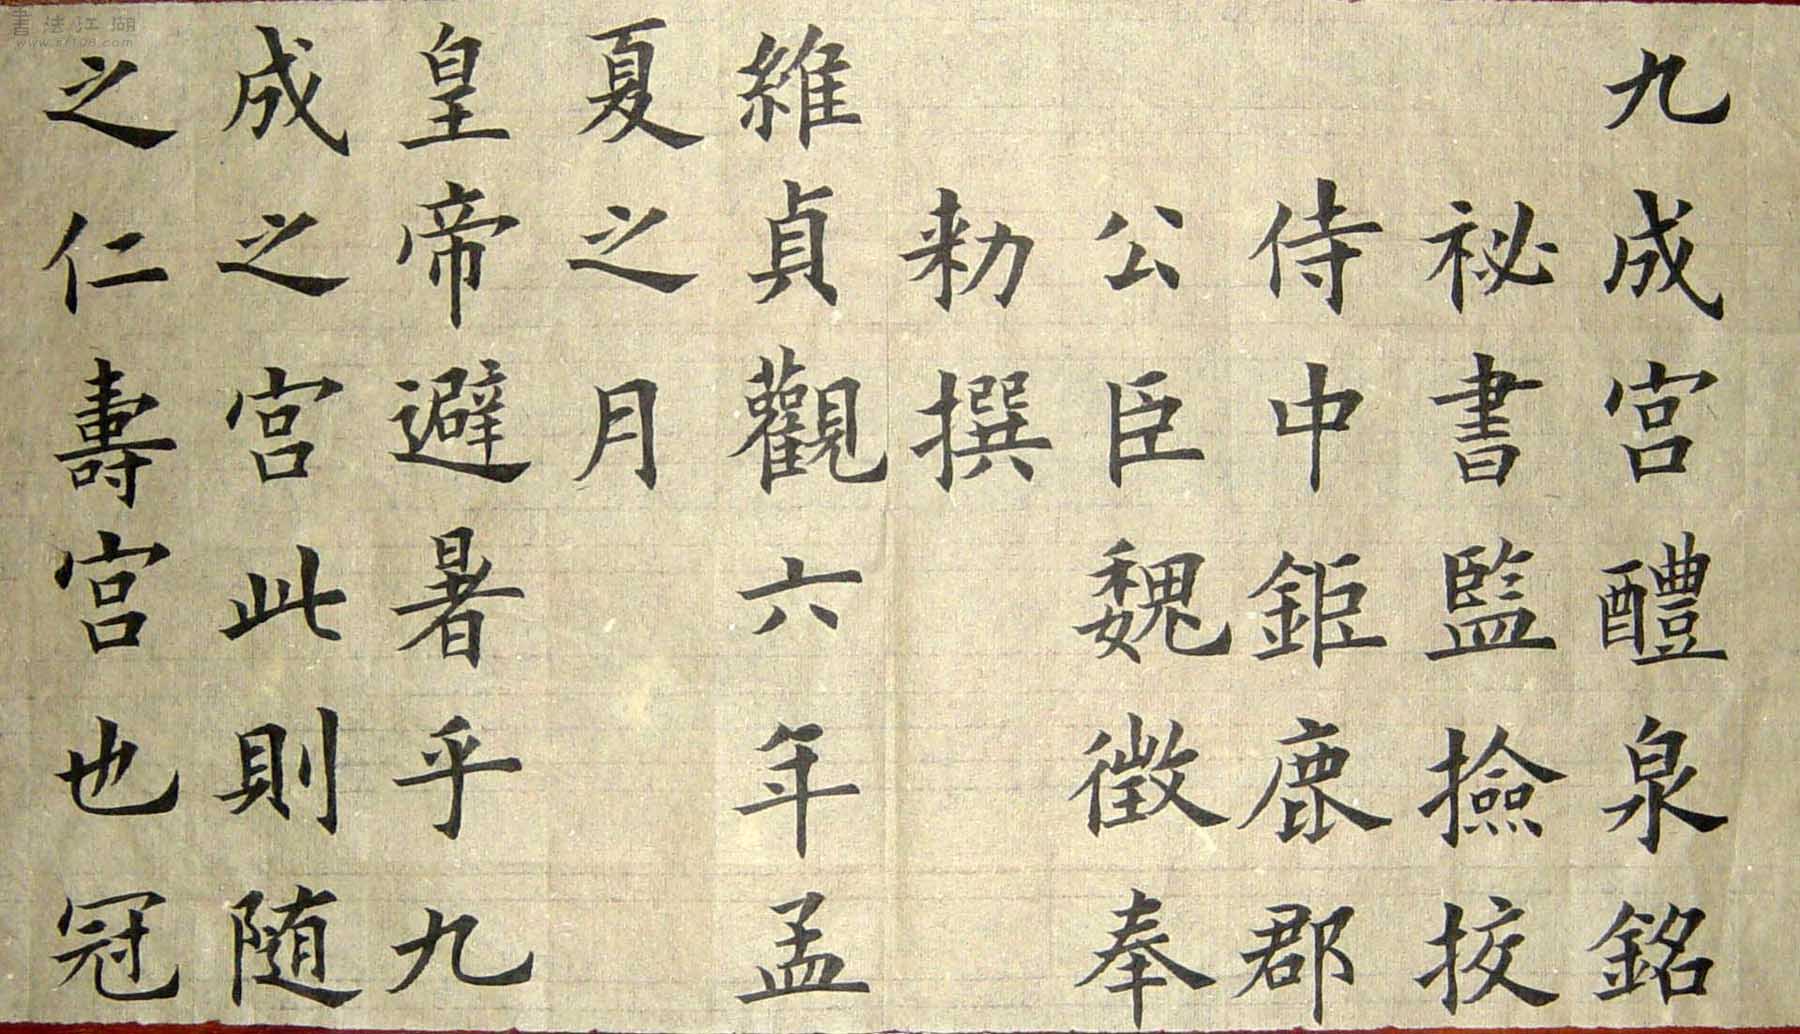 九成宮醴泉銘
祕書監撿挍
侍中鉅鹿郡
公臣魏徵奉
勑撰
維貞觀六年孟
夏之月
皇帝避暑乎九
成之宮此則随
之仁壽宮也冠
書法江湖
www.sf108.com